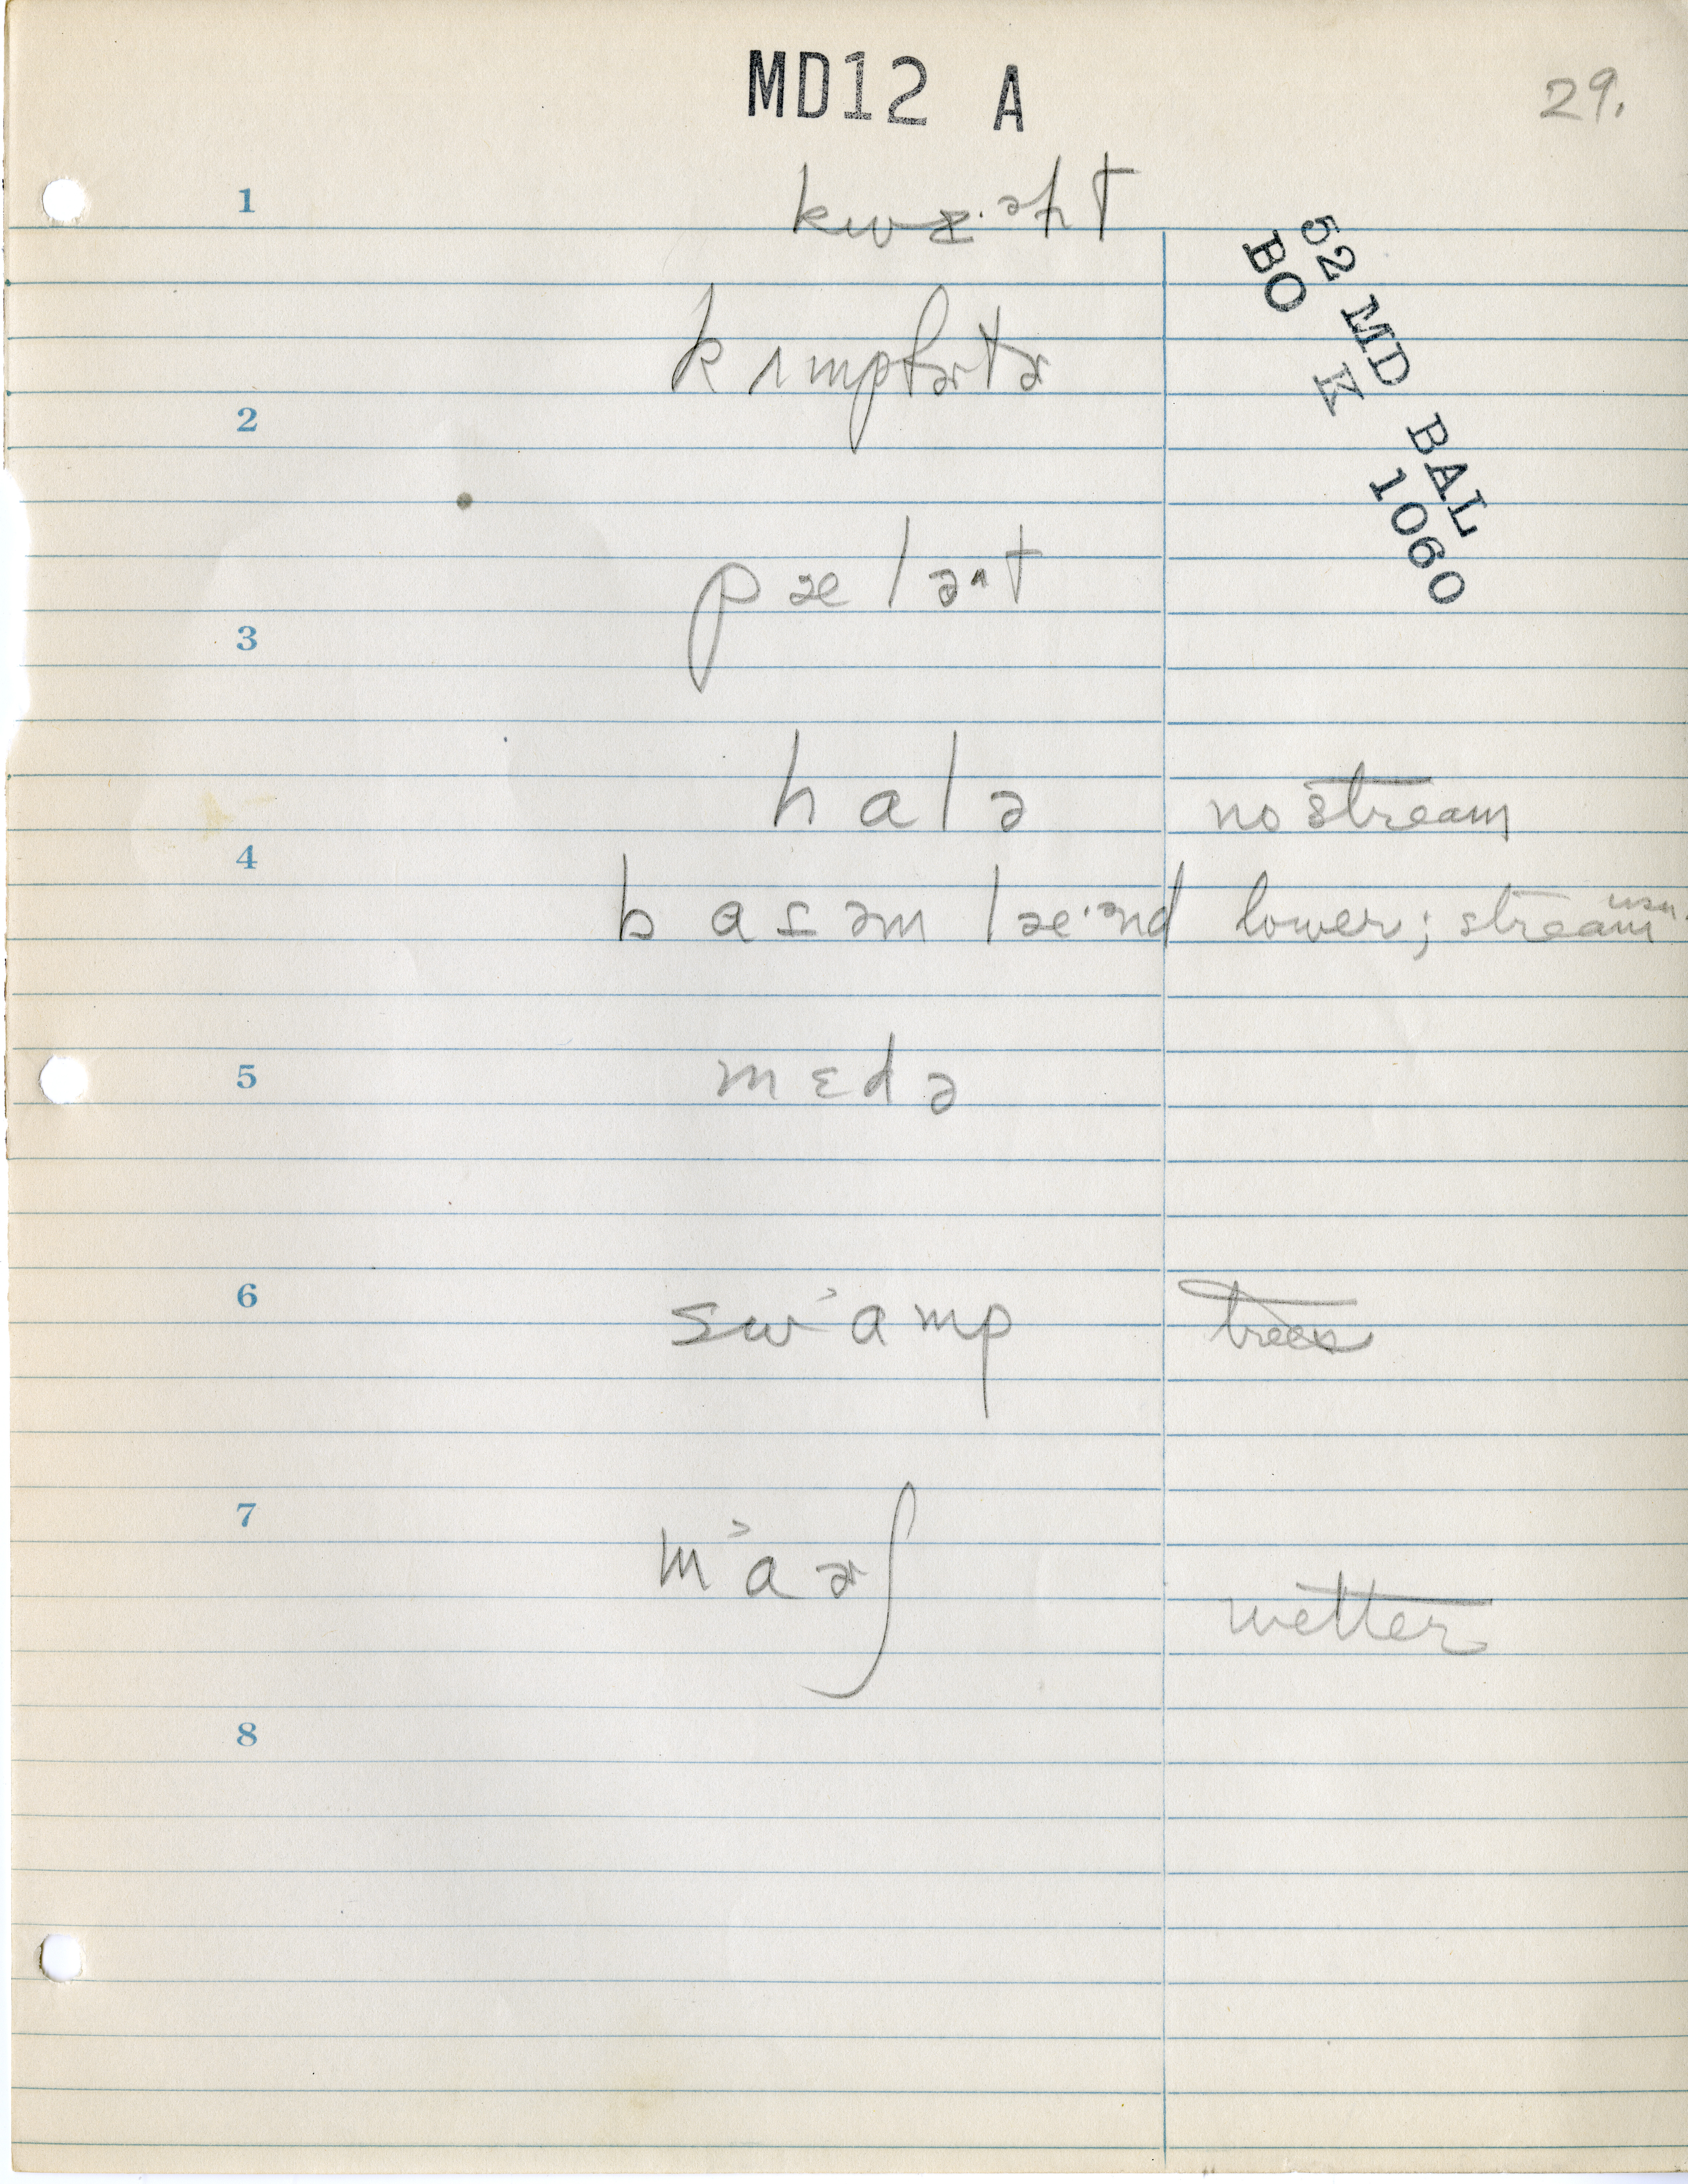 MD12 A
29.
1
52 MD BAL
BO K 1060
2
pæləˑt
3
halə no stream
4
basəm læˑənd lower; stream usu.
5
mɛdə
6
sw˃amp trees
7
m˃aɚʃ
wetter
8